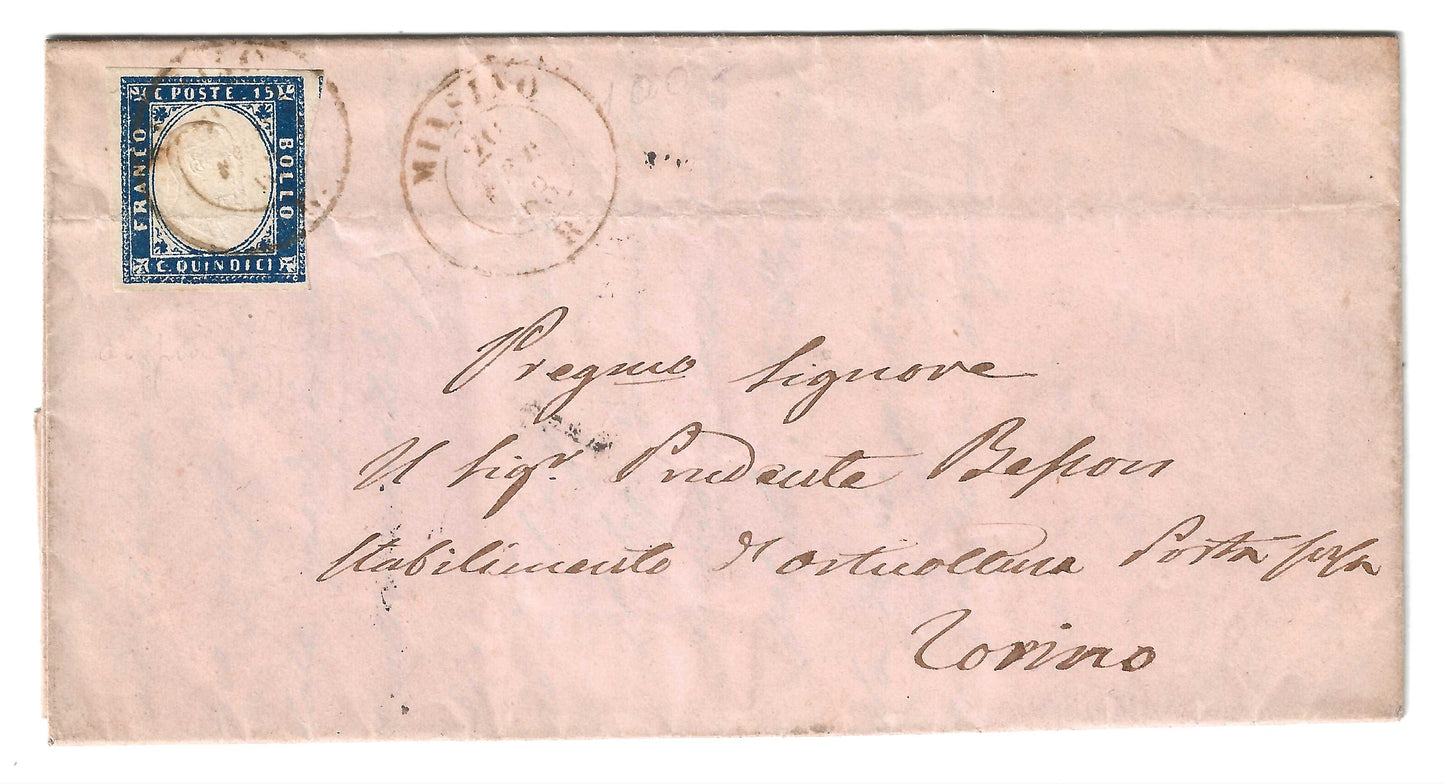 C POSTE 15
FRANCO
BOLLO
C. QUINDICI
MILSINO
20
R
Pregmo Signore
Il Sigr Prudente Besson
Stabilimento d'orticoltura Porta
Torino